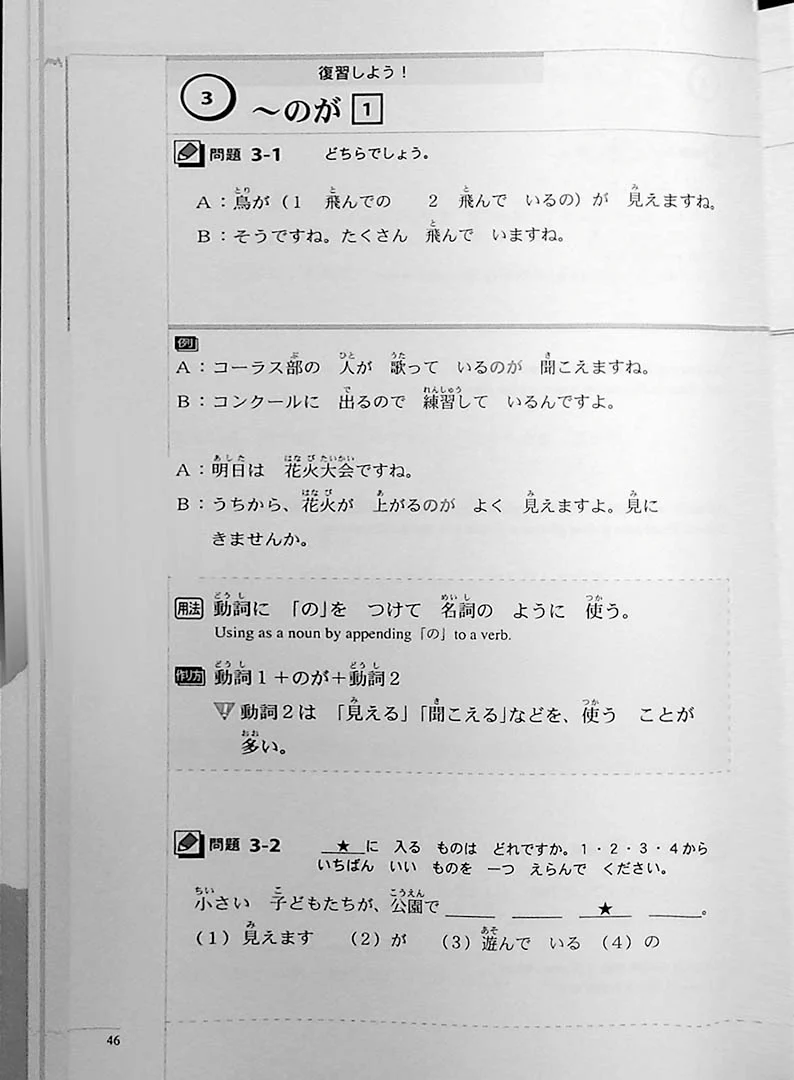 復習しよう！
3 ～のが 1
問題 3-1 どちらでしょう。
A：鳥が（1 飛んでの 2 飛んで いるの）が 見えますね。
B：そうですね。たくさん 飛んで いますね。
例
A：コーラス部の 人が 歌って いるのが 聞こえますね。
B：コンクールに 出るので 練習して いるんですよ。
A：明日は 花火大会ですね。
B：うちから、花火が 上がるのが よく 見えますよ。見に
きませんか。
用法 動詞に 「の」を つけて 名詞の ように 使う。
Using as a noun by appending「の」to a verb.
作り方 動詞1＋のが＋動詞2
! 動詞2は 「見える」「聞こえる」などを、使う ことが
多い。
問題 3-2 ★に 入る ものは どれですか。1・2・3・4から
いちばん いい ものを 一つ えらんで ください。
小さい 子どもたちが、公園で ____ ____ ★ ____。
(1) 見えます (2) が (3) 遊んで いる (4) の
46